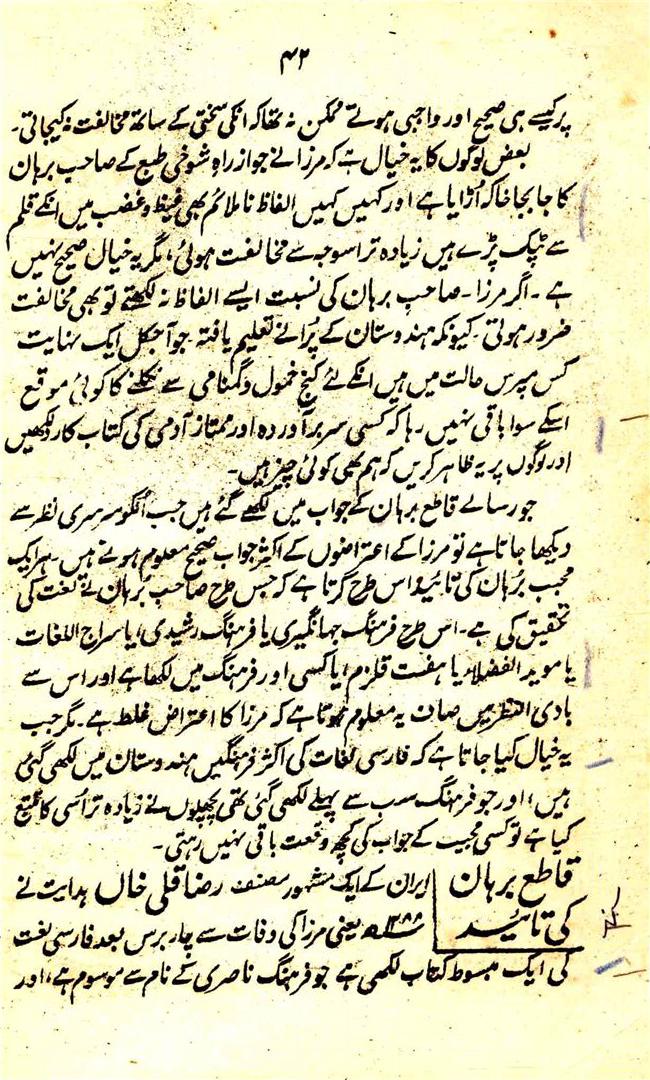 ۴۲
پر کیسے ہی صحیح اور واجبی ہوتے ممکن نہ تھا کہ انکی سختی کے ساتھ مخالفت نہ کیجاتی۔
بعض لوگوں کا یہ خیال ہے کہ مرزا نے جو از راہِ شوخی طبع کے صاحب برہان
کا جابجا خاکہ اُڑایا ہے اور کہیں کہیں الفاظ ناملائم بھی غیظ و غضب میں انکے قلم
سے ٹپک پڑے ہیں زیادہ تر اسوجہ سے مخالفت ہوئی، مگر یہ خیال صحیح نہیں
ہے۔ اگر مرزا۔ صاحب برہان کی نسبت ایسے الفاظ نہ لکھتے تو بھی مخالفت
ضرور ہوتی۔ کیونکہ ہندوستان کے پُرانے تعلیم یافتہ جو آجکل ایک نہایت
کس مپرس حالت میں ہیں انکے لئے کنج خمول و گمنامی سے نکلنے کا کوئی موقع
اسکے سوا باقی نہیں رہا کہ کسی سربرآوردہ اور ممتاز آدمی کی کتاب کا رد لکھیں
اور لوگوں پر یہ ظاہر کریں کہ ہم بھی کوئی چیز ہیں۔
جو رسالے قاطع برہان کے جواب میں لکھے گئے ہیں جب اُنکو سرسری نظر سے
دیکھا جاتا ہے تو مرزا کے اعتراضوں کے اکثر جواب صحیح معلوم ہوتے ہیں۔ ہر ایک
مجیب برہان کی تائید اس طرح کرتا ہے کہ جس طرح صاحب برہان نے لغت کی
تحقیق کی ہے۔ اس طرح فرہنگ جہانگیری یا فرہنگ رشیدی، یا سراج اللغات
یا موید الفضلا، یا ہفت قلزم، یا کسی اور فرہنگ میں لکھا ہے اور اس سے
بادی النظر میں صاف یہ معلوم ہوتا ہے کہ مرزا کا اعتراض غلط ہے۔ مگر جب
یہ خیال کیا جاتا ہے کہ فارسی لغات کی اکثر فرہنگیں ہندوستان میں لکھی گئی
ہیں، اور جو فرہنگ سب سے پہلے لکھی گئی تھی پچھلوں نے زیادہ تر اُسی کا تتبع
کیا ہے تو کسی مجیب کے جواب کی کچھ وقعت باقی نہیں رہتی۔
قاطع برہان
کی تائید
ایران کے ایک مشہور مصنف رضا قلی خاں ہدایت نے
۱۲۸۸ھ یعنی مرزا کی وفات سے چار برس بعد فارسی لغت
کی ایک مبسوط کتاب لکھی ہے جو فرہنگ ناصری کے نام سے موسوم ہے، اور